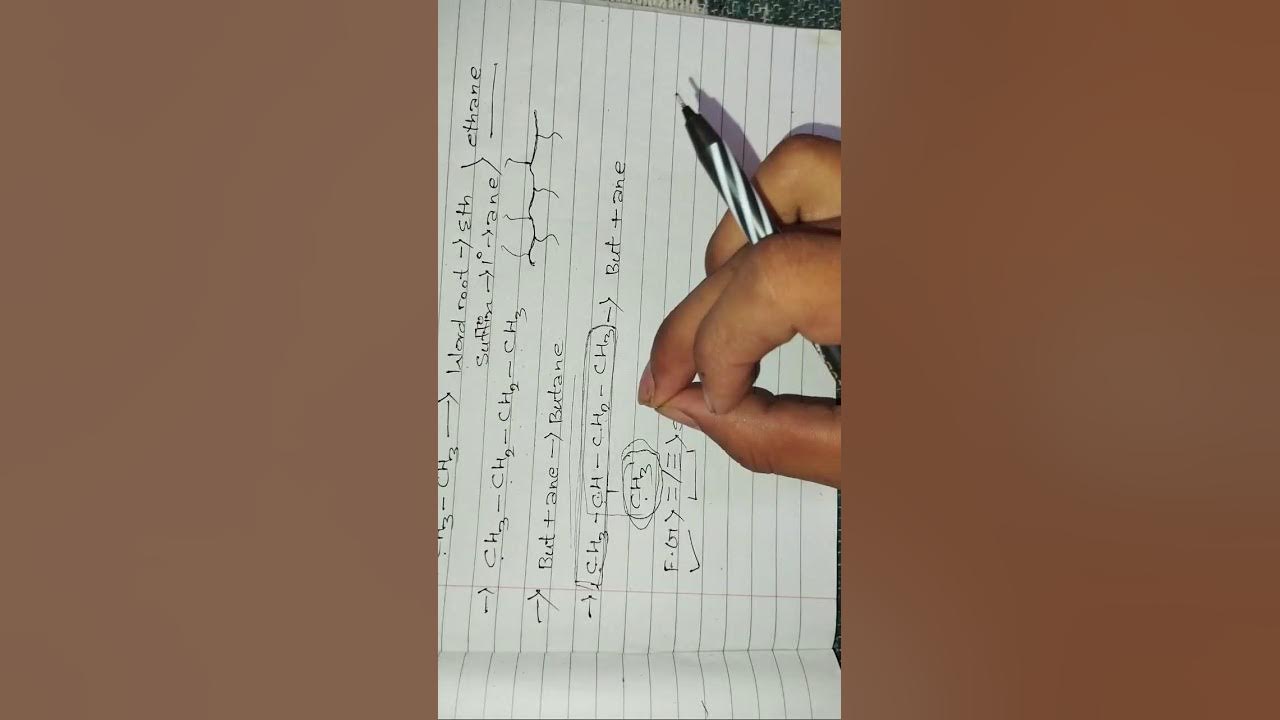 CH3 - CH3 → Word root → Eth } ethane
Suffix → 1° → ane
→ CH3 - CH2 - CH2 - CH3
→ But + ane → Butane
→ CH3 - CH - CH2 - CH3 → But + ane
CH3
F.G > = / ≡ >